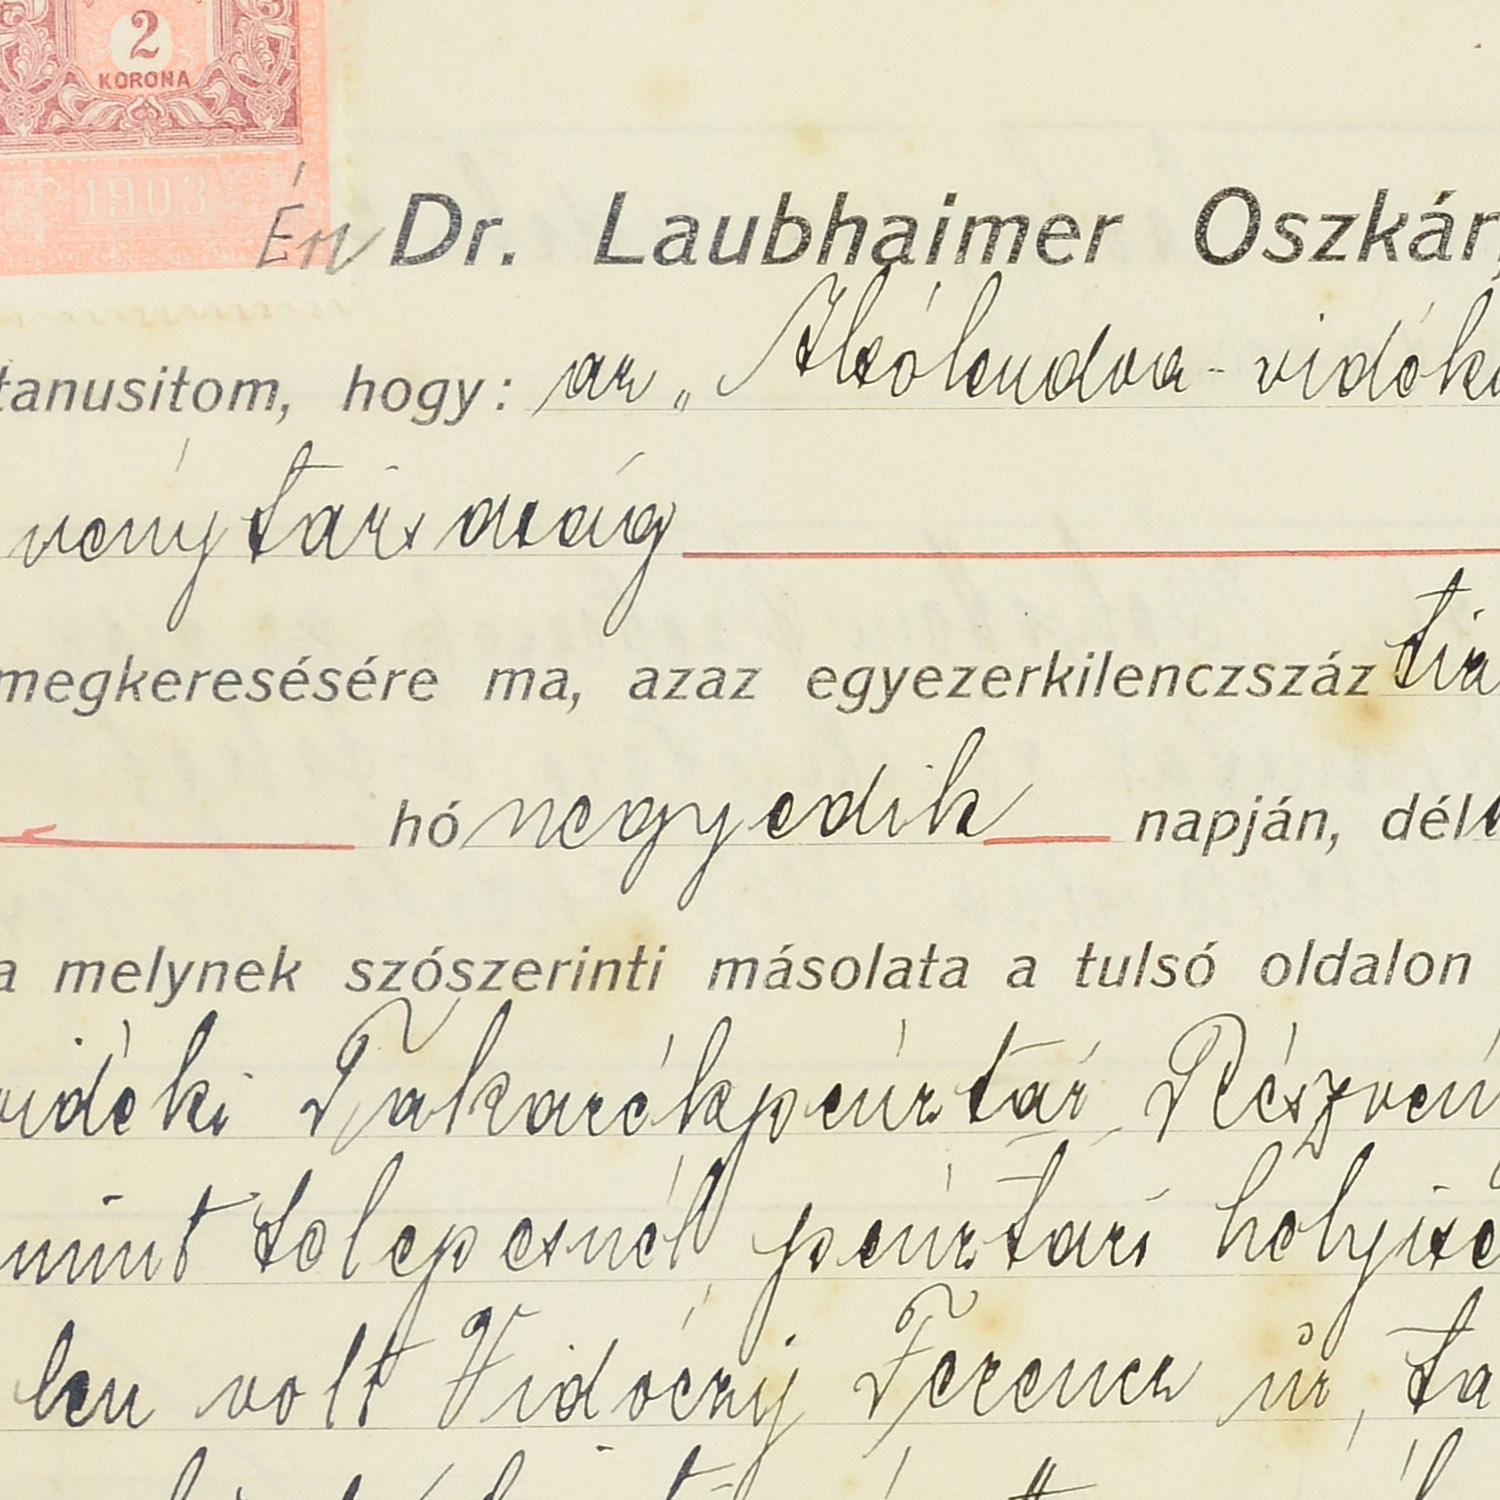 2
KORONA
1903
Én Dr. Laubhaimer Oszkár,
tanusitom, hogy: az „Alsólendva-vidéki
vénytársaság
megkeresésére ma, azaz egyezerkilenczszáz tiz
hó negyedik napján, dél
a melynek szószerinti másolata a tulsó oldalon
vidéki Takarékpénztár Részvén
mint telepesnél, pénztári helyisé
len volt Vidóczy Ferencz úr, ta